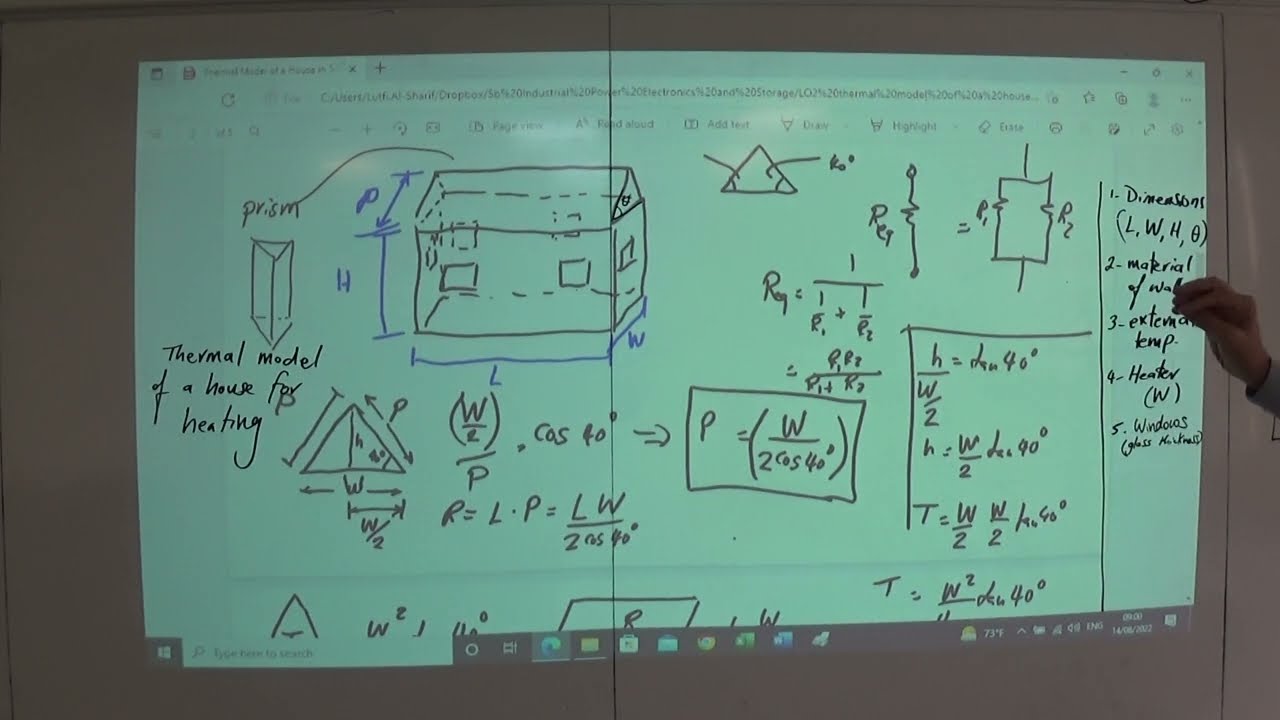 Thermal Model of a House in
C:/Users/Lutfi.Al-Sharif/Dropbox/Sb%20Industrial%20Power%20Electronics%20and%20Storage/LO2%20thermal%20model%20of%20a%20house...
of 5
Page view
Read aloud
Add text
Draw
Highlight
Erase
prism
P
H
L
W
θ
Thermal model
of a house for
heating
P
h
40°
W
W/2
(W/2)/P = cos 40° ⇒ P = (W/2cos40°)
R = L · P = LW/2cos40°
Req = R1 R2
Req = 1/(1/R1 + 1/R2)
= R1R2/(R1 + R2)
h/(W/2) = tan 40°
h = W/2 tan 40°
T = W/2 W/2 tan 40°
T = W² tan 40°
1- Dimensions
(L, W, H, θ)
2- material
of
3- external
temp.
4- Heater
(W)
5. Windows
(glass thickness)
W²
R
W
Type here to search
73°F
ENG
09:00
14/08/2022